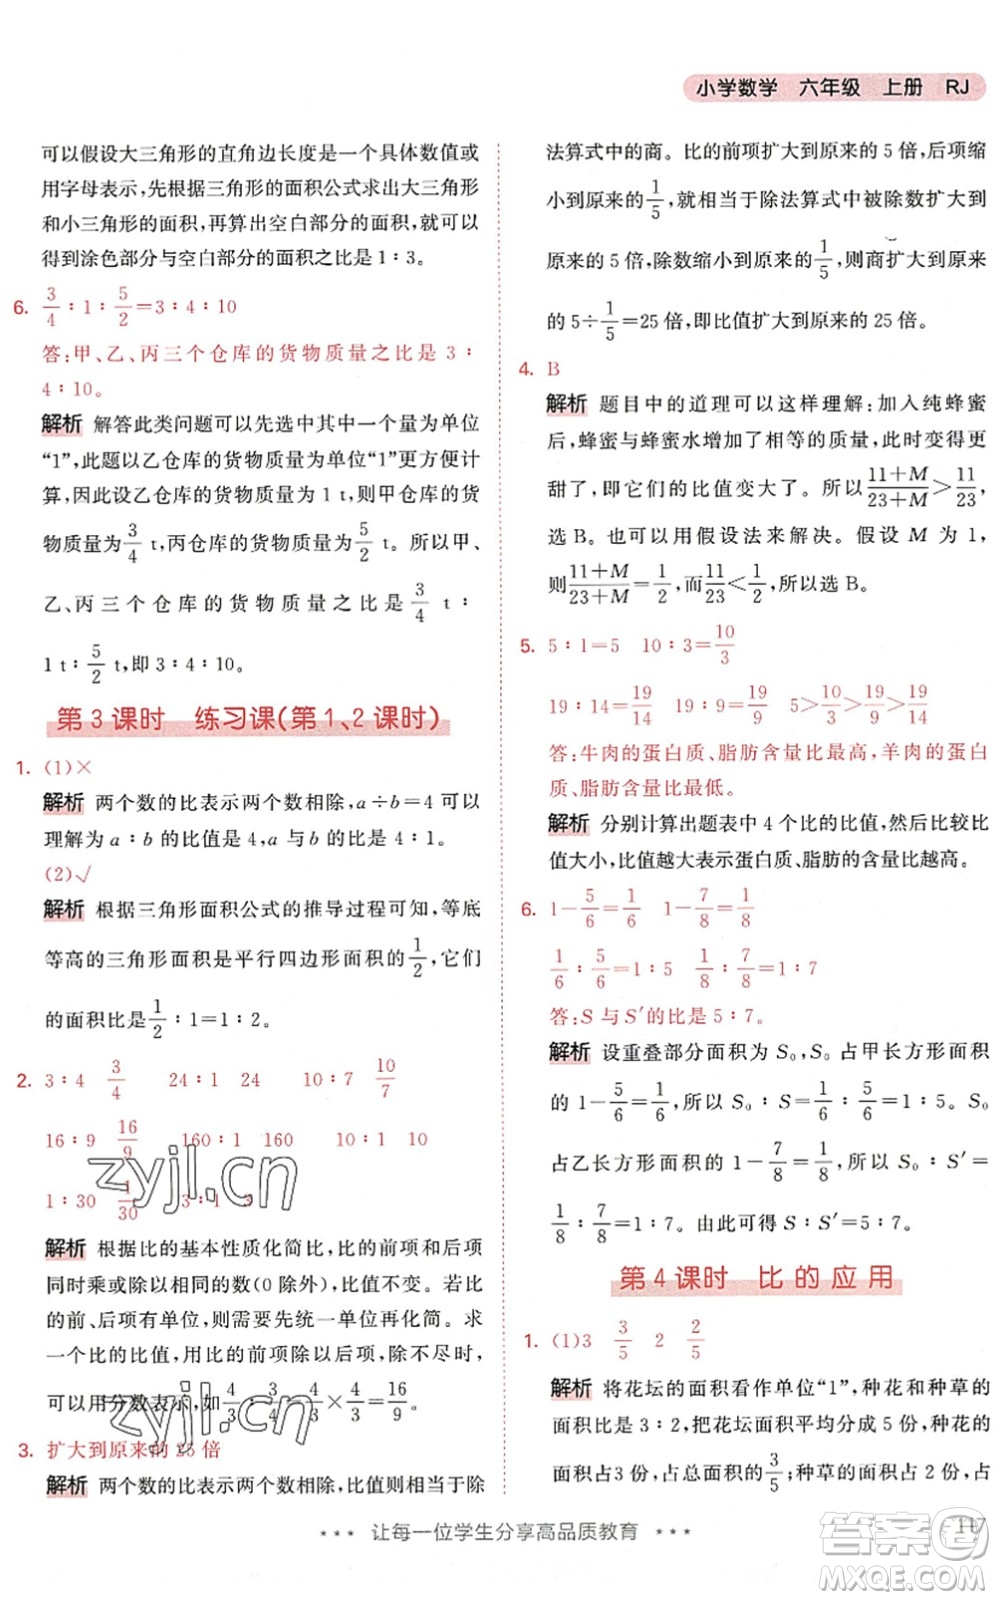 小学数学 六年级 上册 RJ
可以假设大三角形的直角边长度是一个具体数值或
用字母表示,先根据三角形的面积公式求出大三角形
和小三角形的面积,再算出空白部分的面积,就可以
得到涂色部分与空白部分的面积之比是1∶3。
6. 3/4∶1∶5/2=3∶4∶10
答:甲、乙、丙三个仓库的货物质量之比是3∶
4∶10。
解析 解答此类问题可以先选中其中一个量为单位
“1”,此题以乙仓库的货物质量为单位“1”更方便计
算,因此设乙仓库的货物质量为1 t,则甲仓库的货
物质量为3/4 t,丙仓库的货物质量为5/2 t。所以甲、
乙、丙三个仓库的货物质量之比是3/4 t∶
1 t∶5/2 t,即3∶4∶10。
第3课时 练习课(第1、2课时)
1. (1)×
解析 两个数的比表示两个数相除,a÷b=4可以
理解为a∶b的比值是4,a与b的比是4∶1。
(2)√
解析 根据三角形面积公式的推导过程可知,等底
等高的三角形面积是平行四边形面积的1/2,它们
的面积比是1/2∶1=1∶2。
2. 3∶4 3/4 24∶1 24 10∶7 10/7
16∶9 16/9 160∶1 160 10∶1 10
1∶30 1/30 3∶1 3
解析 根据比的基本性质化简比,比的前项和后项
同时乘或除以相同的数(0除外),比值不变。若比
的前、后项有单位,要先统一单位再化简。求
一个比的比值,用比的前项除以比的后项,最后结果
可以用分数表示,如4/3∶3/4=4/3×4/3=16/9。
3. 扩大到原来的25倍
解析 两个数的比表示两个数相除,比值则相当于除
法算式中的商。比的前项扩大到原来的5倍,后项缩
小到原来的1/5,就相当于除法算式中被除数扩大到
原来的5倍,除数缩小到原来的1/5,则商扩大到原来
的5÷1/5=25倍,即比值扩大到原来的25倍。
4. B
解析 题目中的道理可以这样理解:加入纯蜂蜜
后,蜂蜜与蜂蜜水增加了相等的质量,此时变得更
甜了,即它们的比值变大了。所以(11+M)/(23+M)>11/23,
选B。也可以用假设法来解决。假设M为1,
则(11+M)/(23+M)=1/2,而11/23<1/2,所以选B。
5. 5∶1=5 10∶3=10/3
19∶14=19/14 19∶9=19/9 5>10/3>19/9>19/14
答:牛肉的蛋白质、脂肪含量比最高,羊肉的蛋白
质、脂肪含量比最低。
解析 分别计算出题表中4个比的比值,然后比较比
值大小,比值越大表示蛋白质、脂肪的含量比越高。
6. 1-5/6=1/6 1-7/8=1/8
1/6∶5/6=1∶5 1/8∶7/8=1∶7
答:S与S′的比是5∶7。
解析 设重叠部分面积为S₀,S₀占甲长方形面积
的1-5/6=1/6,所以S₀∶S=1/6∶5/6=1∶5。S₀
占乙长方形面积的1-7/8=1/8,所以S₀∶S′=
1/8∶7/8=1∶7。由此可得S∶S′=5∶7。
第4课时 比的应用
1. (1)3 3/5 2 2/5
解析 将花坛的面积看作单位“1”,种花和种草的
面积比为3∶2,把花坛面积平均分成5份,种花的
面积占3份,占总面积的3/5;种草的面积占2份,占
*** 让每一位学生分享高品质教育 ***
117
zyjl.cn
zyjl.cn
答案圈
MXQE.COM